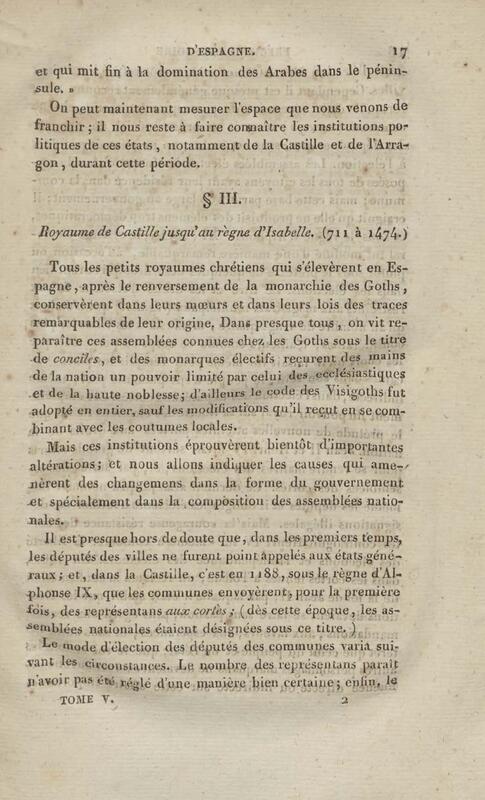 D'ESPAGNE. 17
et qui mit fin à la domination des Arabes dans le pénin-
sule. »
On peut maintenant mesurer l'espace que nous venons de
franchir ; il nous reste à faire connaître les institutions po-
litiques de ces états , notamment de la Castille et de l'Arra-
gon , durant cette période.
§ III.
Royaume de Castille jusqu'au règne d'Isabelle. (711 à 1474.)
Tous les petits royaumes chrétiens qui s'élevèrent en Es-
pagne , après le renversement de la monarchie des Goths ,
conservèrent dans leurs mœurs et dans leurs lois des traces
remarquables de leur origine. Dans presque tous , on vit re-
paraître ces assemblées connues chez les Goths sous le titre
de conciles, et des monarques électifs reçurent des mains
de la nation un pouvoir limité par celui des ecclésiastiques
et de la haute noblesse; d'ailleurs le code des Visigoths fut
adopté en entier, sauf les modifications qu'il reçut en se com-
binant avec les coutumes locales.
Mais ces institutions éprouvèrent bientôt d'importantes
altérations; et nous allons indiquer les causes qui ame-
nèrent des changemens dans la forme du gouvernement
et spécialement dans la composition des assemblées natio-
nales.
Il est presque hors de doute que , dans les premiers temps,
les députés des villes ne furent point appelés aux états géné-
raux ; et , dans la Castille, c'est en 1188, sous le règne d'Al-
phonse IX, que les communes envoyèrent, pour la première
fois, des représentans aux cortès ; (dès cette époque, les as-
semblées nationales étaient désignées sous ce titre. )
Le mode d'élection des députés des communes varia sui-
vant les circonstances. Le nombre des représentans paraît
n'avoir pas été réglé d'une manière bien certaine ; enfin, le
TOME V. 2